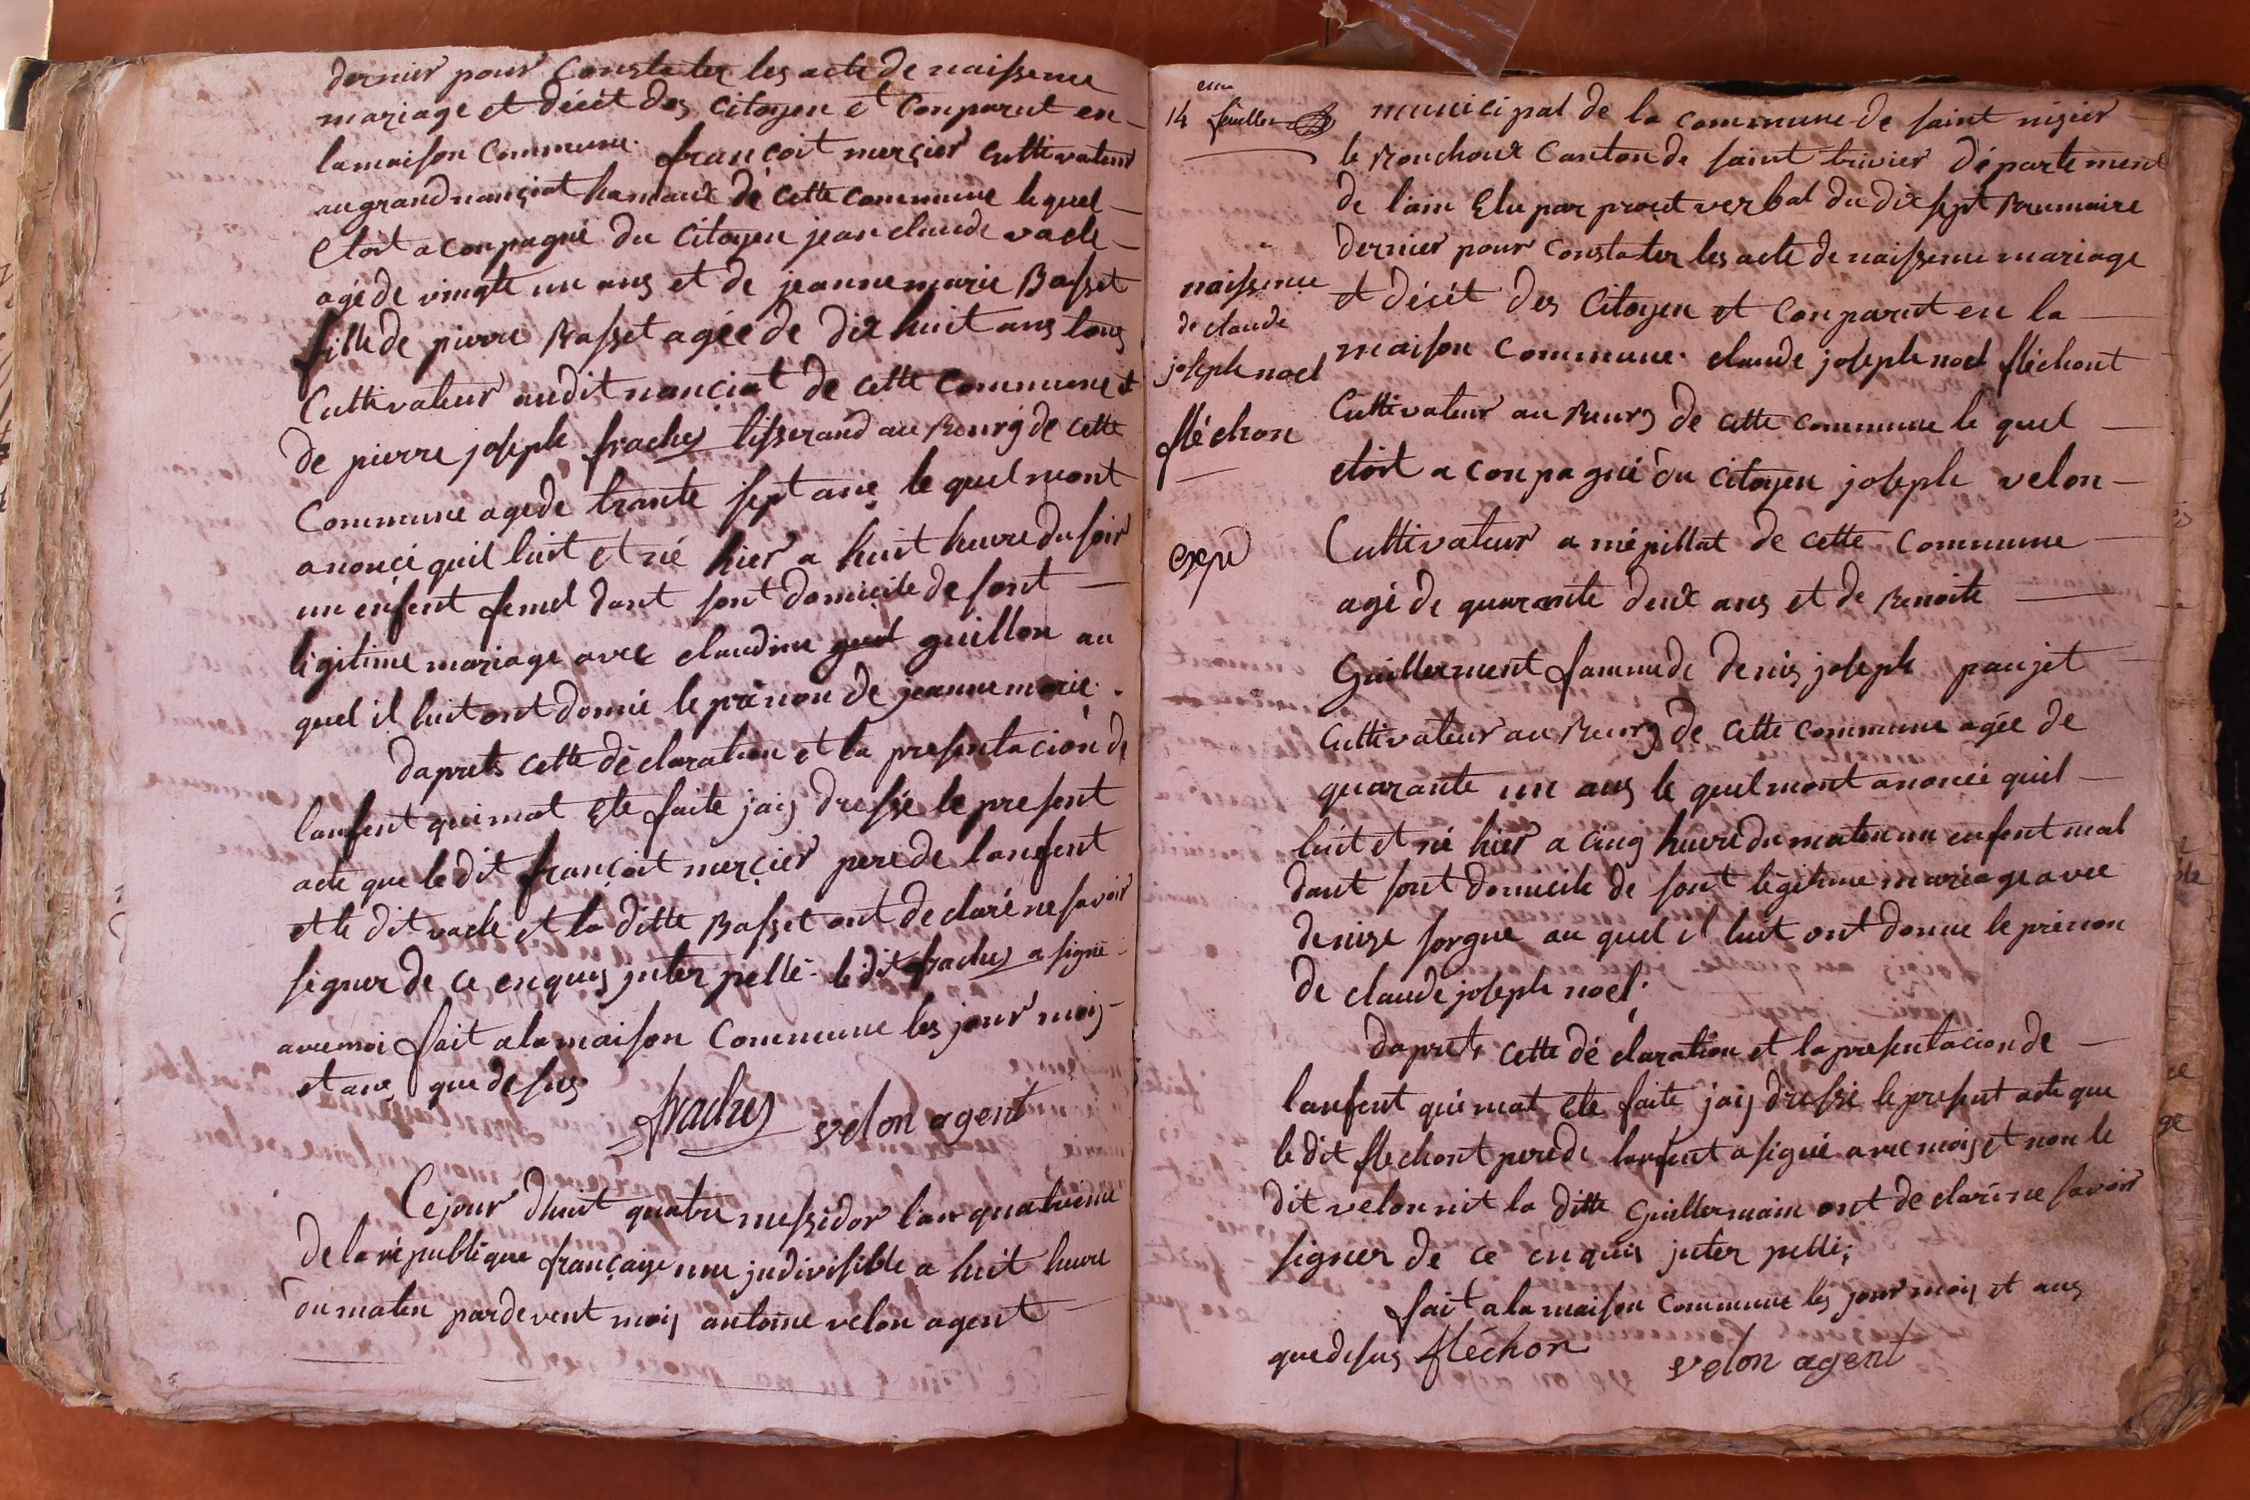 dernier pour Constater les acte de naissence
mariage et décèt des Citoyen et Conparut en
la maison Commune. françoit mercier Cultivateur
au grand nançiat hamaux de cette Commune le quel
etoit aconpagné du Citoyen jean claude vacle
agé de vingte un ans et de jeanne marie Basset
fille de pierre Basset agée de dix huit ans tous
Cultivateur audit nanciat de cette Commune et
de pierre joseph frachey tisserand au Bourg de cette
Commune agé de trante sept ans le quel mont
anoncé quil luit et né hier a huit heure du soir
un enfent femel dant sont domicile de sont
légitime mariage avec claudine guillon au
quel il luit ont donné le prénon de jeanne marie.
daprets cette déclaration et la presentacion de
lanfent qui mat ete faite jais dressé le present
acte que le dit françoit mercier pere de lanfent
et le dit vacle et la ditte Basset ont declaré ne savoir
signer de ce enquis jnter pellé. le dit frachey a signé
avec moi fait a la maison Commune les jour mois
et ans que desus
frachey velon agent
Ce jour dhuit quatre messidor lan quatrieme
de la république françaize une jndivisible a huit heure
du maten pardevent mois antoine velon agent
14 eme feuillet
municipal de la commune de saint nizier
le Bouchoux Canton de saint trivier département
de l'ain Elu par procet verbal du dix sept Brumaire
dernier pour Constater les acte de naissence mariage
et décèt des Citoyen et Conparut en la
maison Commune. claude joseph noel fléchont
Cultivateur au Bourg de cette commune le quel
etoit aconpagné du Citoyen joseph velon
Cultivateur a mépillat de cette Commune
agé de quarante deux ans et de Benoite
Guillerment famme de denis joseph paujet
Cultivateur au Bourg de cette commune agée de
quarante un ans le quel mont anoncé quil
luit et né hier a cinq heure du maten un enfent mal
dant sont domicile de sont légitime mariage avec
denize sorgue au quel il luit ont donné le prénon
de claude joseph noel.
daprets cette déclaration et la presentacion de
lanfent qui mat ete faite jais dressé le present acte que
le dit flechont pere de lanfent a signé avec mois et non le
dit velon nit la ditte Guillermain ont declaré ne savoir
signer de ce enquis jnter pellé;
fait a la maison Commune les jour mois et ans
que desus fléchon velon agent
naissence
de claude
joseph noel
fléchon
expé